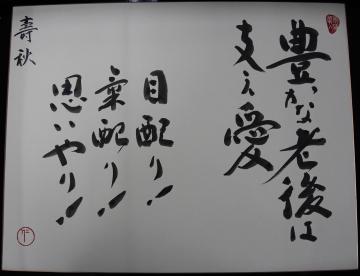 豊かな老後は
支え愛
目配り!
氣配り!!
思いやり!
壽秋